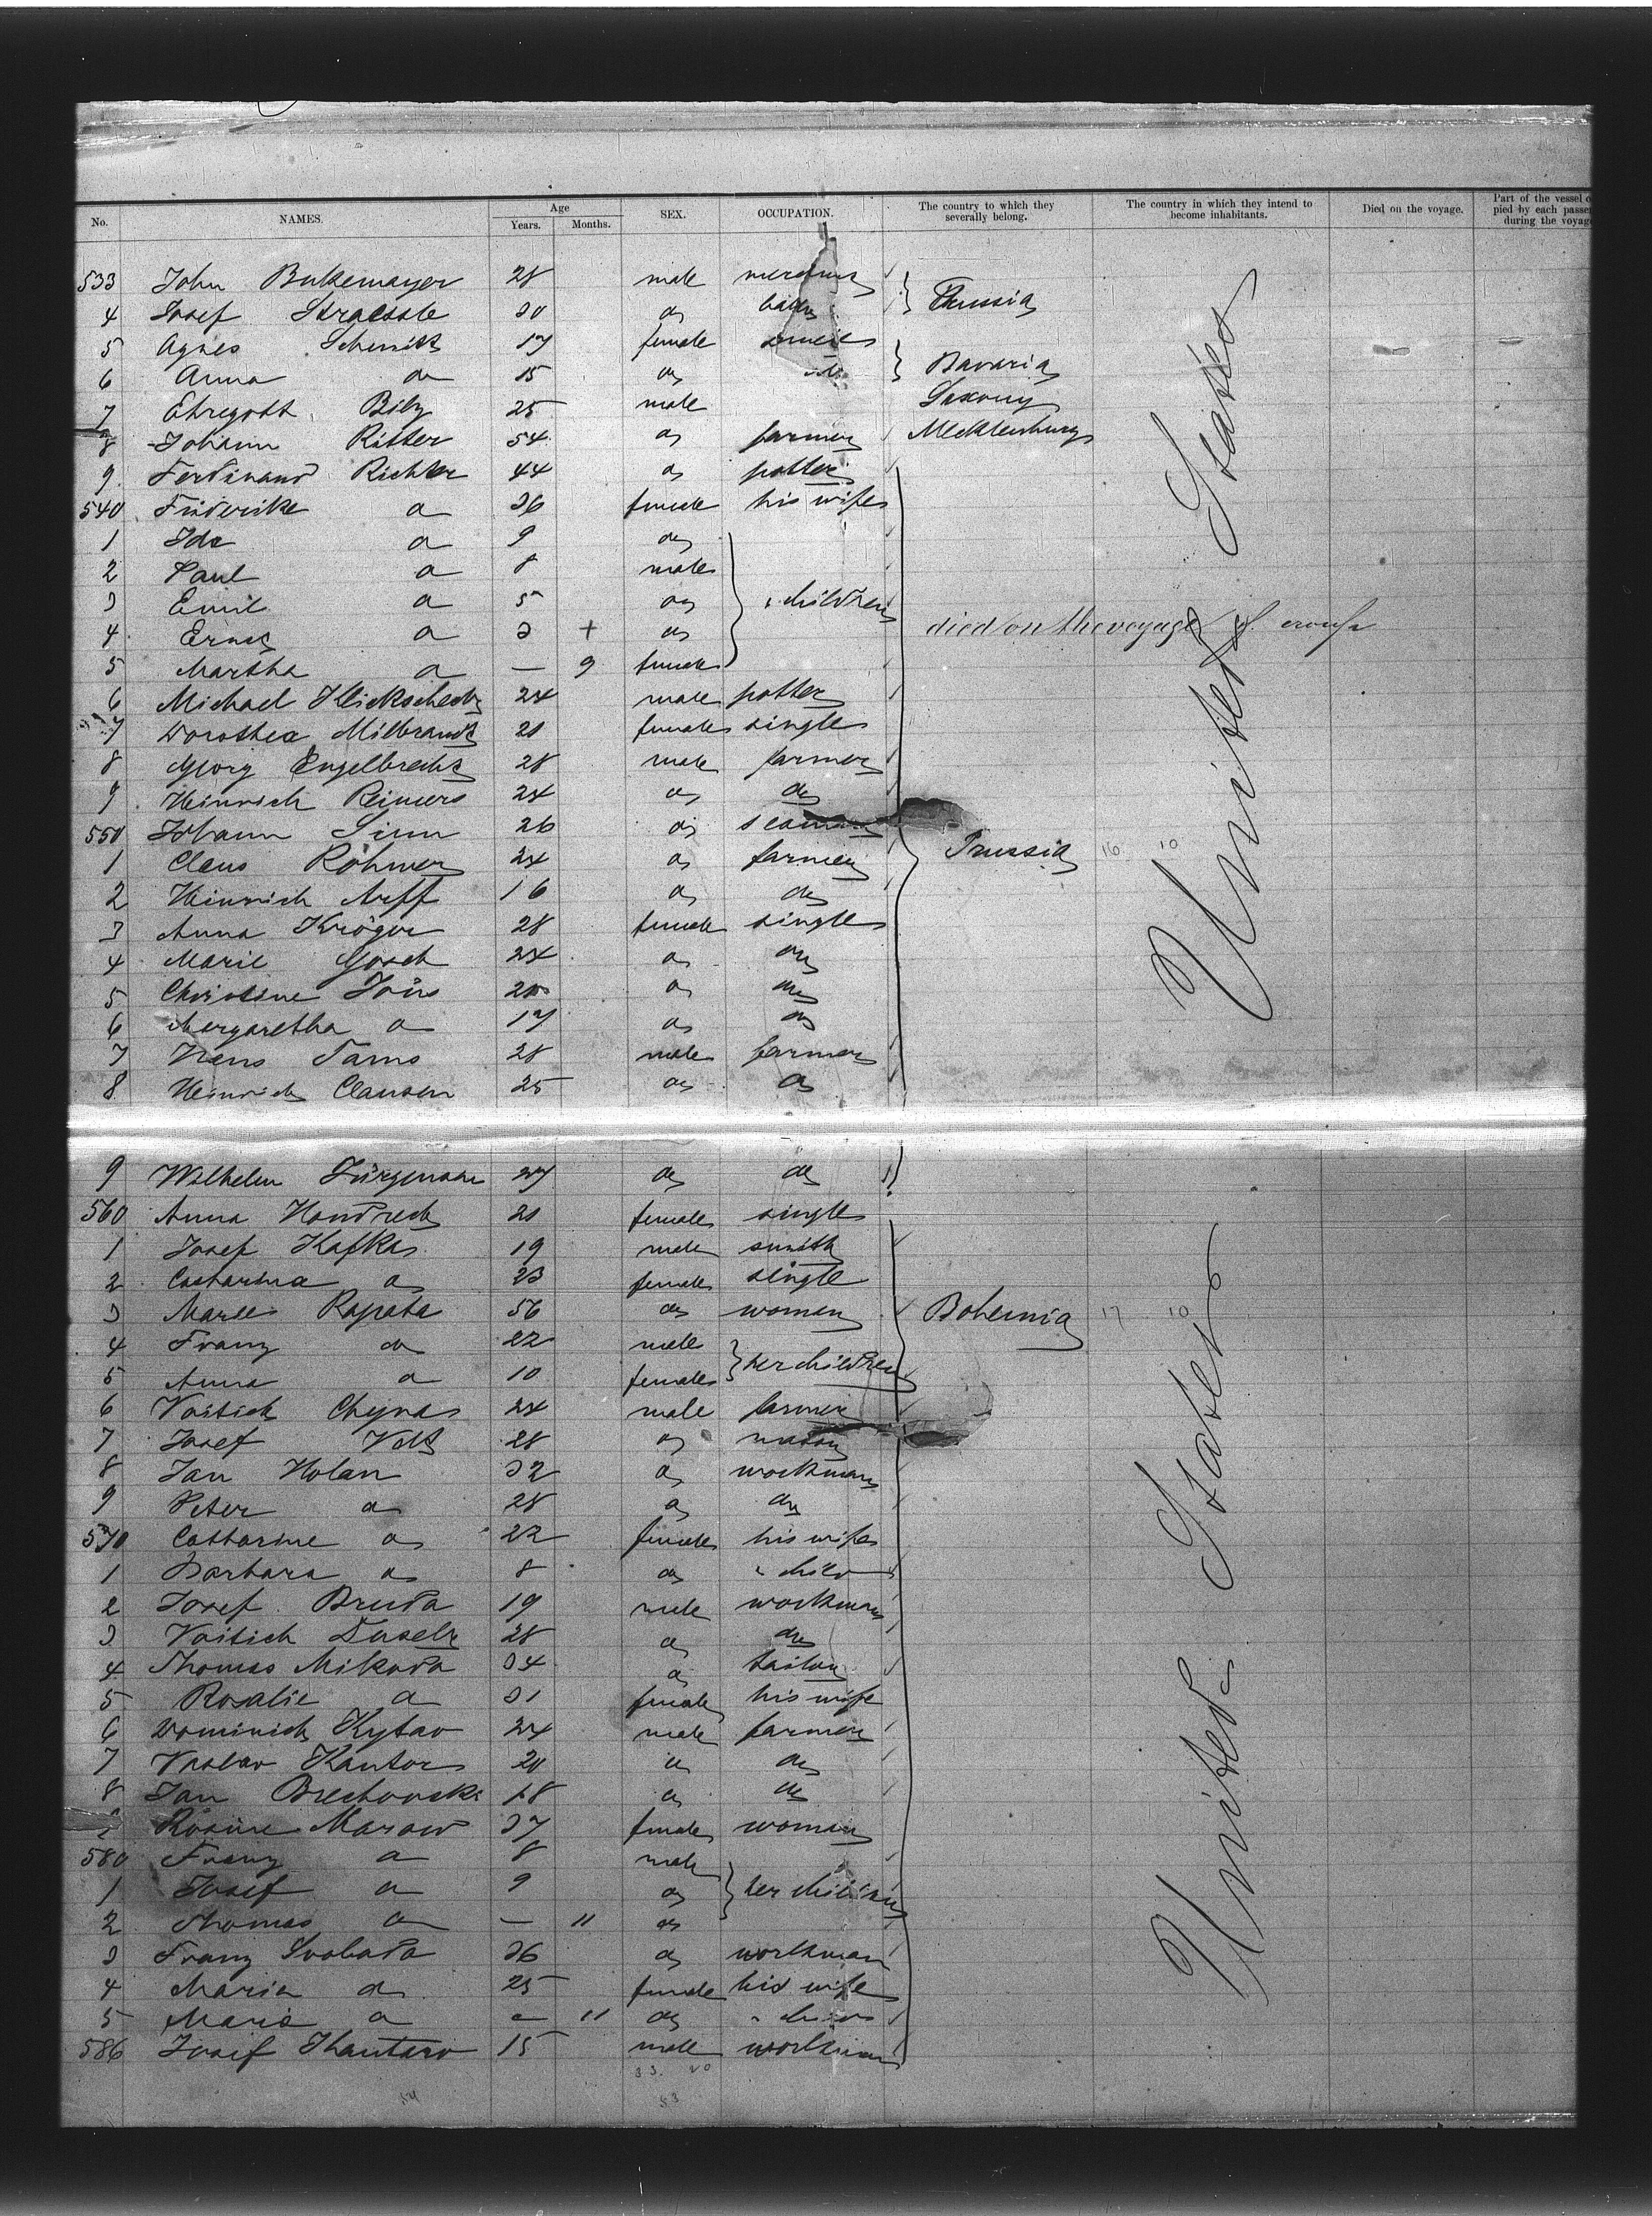 No. NAMES. Age Years. Months. SEX. OCCUPATION. The country to which they severally belong. The country in which they intend to become inhabitants. Died on the voyage. Part of the vessel pied by each during the
533 John 28 male
4 Josef 30 do Prussia
5 Agnes Schmitt 17 female
6 Anna do 15 do Bavaria
7 Ehregott Bilz 25 male Saxony
8 Johann Ritter 54 do farmer Mecklenburg
9 Ferdinand Richter 44 do potter
540 Friderike do 36 female his wife
1 Ida do 9 do
2 Paul do 8 male
3 Emil do 5 do children
4 Ernst do 3 + do died on the voyage of croup
5 Martha do — 9 female
6 Michael 24 male potter
7 Dorothea Milbrandt 21 female single
8 Georg Engelbrecht 28 male farmer
9 Heinrich Reimers 24 do do
550 Johann 26 do seaman
1 Claus Röhmer 24 do farmer Prussia 16 10
2 Heinrich Arff 16 do do
3 Anna Kröger 28 female single
4 Marie Gosch 24 do do
5 Christine do do
6 Margaretha do 17 do do
7 Hans Tams 28 male farmer
8 Heinrich Clausen 25 do do
United States
9 Wilhelm Jürgensen 27 do do
560 Anna 21 female single
1 Josef Kafka 19 male smith
2 Catharina do 23 female single
3 Marie Rapata 56 do women Bohemia 17 10
4 Franz do 22 male
5 Anna do 10 female her children
6 Voitich Chyna 24 male farmer
7 Josef 28 do mason
8 Jan Holan 32 do workman
9 Peter do 28 do do
570 Catharine do 22 female his wife
1 Barbara do 8 do " child
2 Josef Bruda 19 male workman
3 Voitich 28 do do
4 Thomas Mikoda 34 do tailor
5 Rosalie do 31 female his wife
6 Dominich Kytav 24 male farmer
7 Vaslav Kantor 20 do do
8 Jan 18 do do
Rosine 37 female woman
580 Franz do 8 male
1 Josef do 9 do her children
2 Thomas do — 11 do
3 Franz Svoboda 36 do workman
4 Maria do 25 female his wife
5 Maria do — 11 do " child
586 Josef 15 male workman
United States
33. 20
53